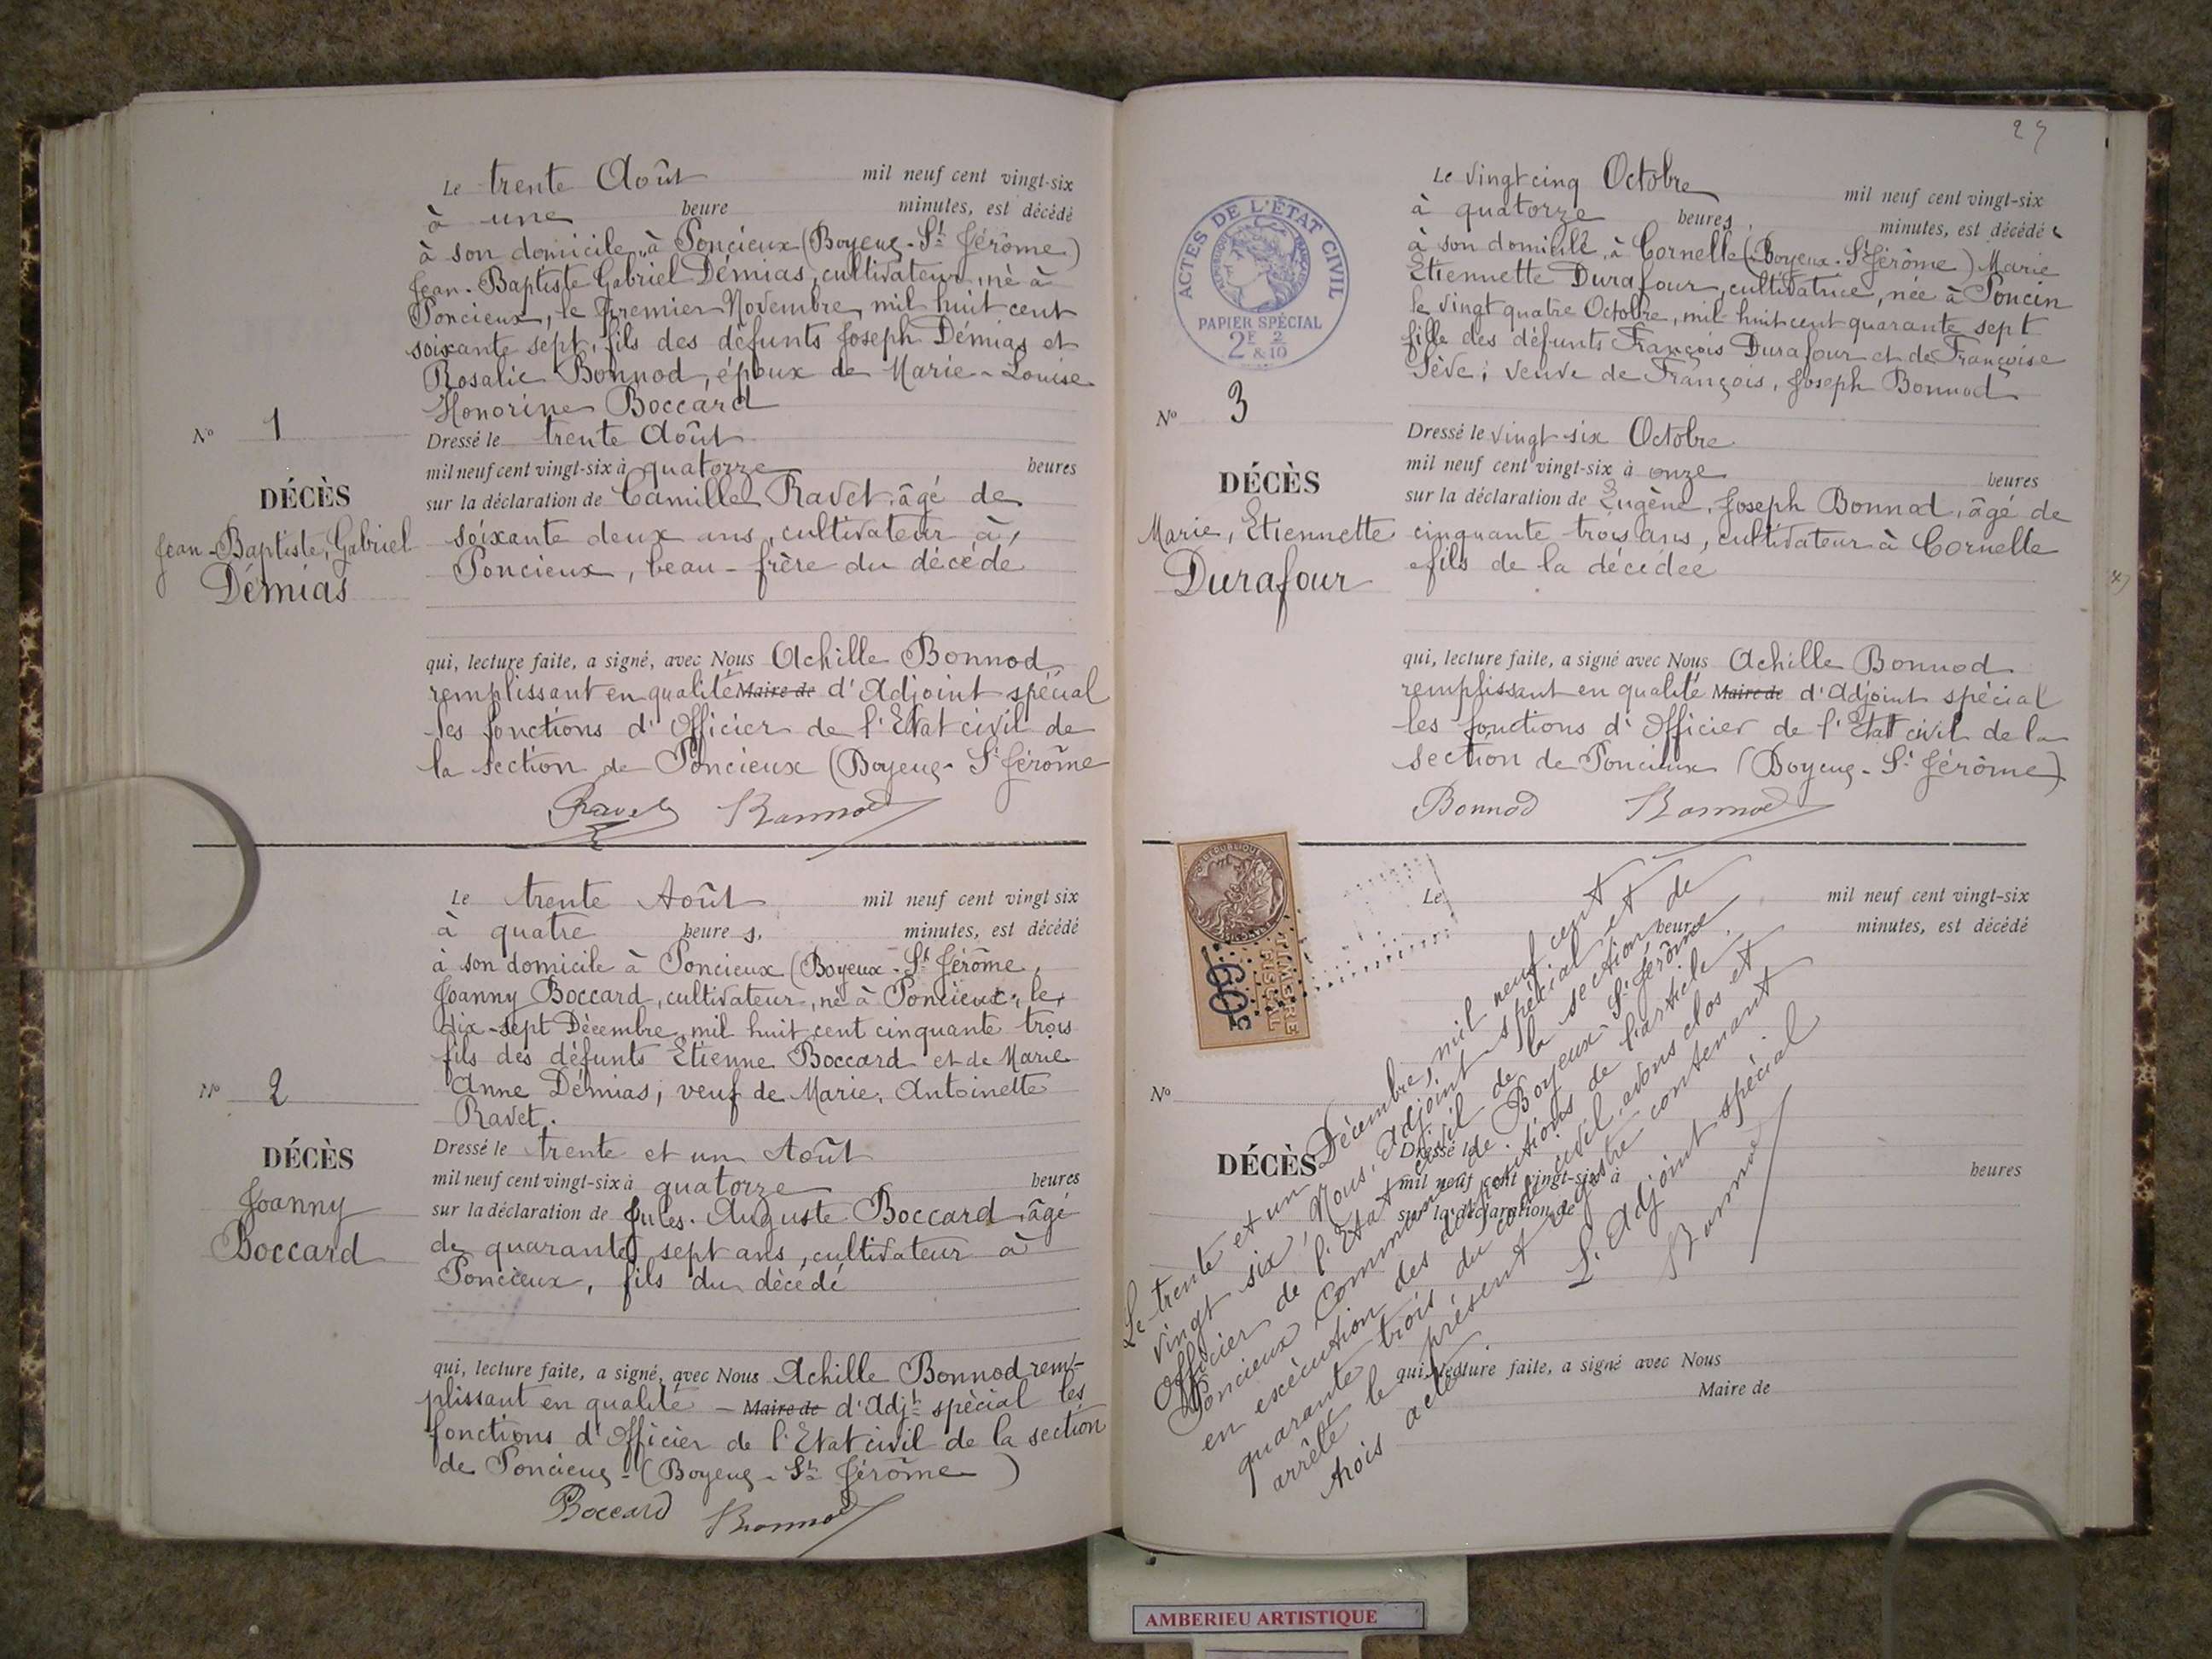 Le trente Août mil neuf cent vingt-six
à une heure minutes, est décédé
à son domicile, à Poncieux (Boyeux-St Jérôme)
Jean-Baptiste Gabriel Démias, cultivateur, né à
Poncieux, le premier Novembre, mil huit cent
soixante sept, fils des défunts Joseph Démias et
Rosalie Bonnod, époux de Marie-Louise
Honorine Boccard
No 1
Dressé le trente Août
mil neuf cent vingt-six à quatorze heures
DÉCÈS
sur la déclaration de Camille Ravet, âgé de
Jean-Baptiste, Gabriel
soixante deux ans, cultivateur à
Démias
Poncieux, beau-frère du décédé
qui, lecture faite, a signé, avec Nous Achille Bonnod
remplissant en qualité Maire de d'Adjoint spécial
les fonctions d'Officier de l'Etat civil de
la section de Poncieux (Boyeux-St Jérôme
Ravet Bonnod
Le trente Août mil neuf cent vingt six
à quatre heures, minutes, est décédé
à son domicile à Poncieux (Boyeux-St Jérôme,
Joanny Boccard, cultivateur, né à Poncieux, le
dix-sept Décembre, mil huit cent cinquante trois
fils des défunts Etienne Boccard et de Marie
Anne Démias; veuf de Marie, Antoinette
Ravet.
No 2
Dressé le trente et un Août
mil neuf cent vingt-six à quatorze heures
DÉCÈS
sur la déclaration de Jules. Auguste Boccard, âgé
Joanny
de quarante sept ans, cultivateur à
Boccard
Poncieux, fils du décédé
qui, lecture faite, a signé, avec Nous Achille Bonnod rem-
plissant en qualité - Maire de d'Adjt spécial les
fonctions d'Officier de l'Etat civil de la section
de Poncieux-(Boyeux-St Jérôme)
Boccard Bonnod
27
Le vingt cinq Octobre mil neuf cent vingt-six
à quatorze heures, minutes, est décédée
à son domicile, à Cornelle (Boyeux-St Jérôme) Marie
Etiennette Durafour, cultivatrice, née à Poncin
le vingt quatre Octobre, mil huit cent quarante sept
fille des défunts François Durafour et de Françoise
Sève; veuve de François, Joseph Bonnod
ACTES DE L'ÉTAT CIVIL
RÉPUBLIQUE FRANÇAISE
PAPIER SPÉCIAL
2E 2/10
& 10
No 3
Dressé le vingt six Octobre
mil neuf cent vingt-six à onze heures
DÉCÈS
sur la déclaration de Eugène, Joseph Bonnod, âgé de
Marie, Etiennette
cinquante trois ans, cultivateur à Cornelle
Durafour
fils de la décédée
qui, lecture faite, a signé avec Nous Achille Bonnod
remplissant en qualité Maire de d'Adjoint spécial
les fonctions d'Officier de l'Etat civil de la
section de Poncieux (Boyeux-St Jérôme)
Bonnod Bonnod
TIMBRE
FISCAL
Le mil neuf cent vingt-six
heure minutes, est décédé
No
DÉCÈS
Dressé le
mil neuf cent vingt-six à heures
sur la déclaration de
qui, lecture faite, a signé avec Nous
Maire de
Le trente et un Décembre, mil neuf cent
vingt six, Nous, Adjoint spécial et de
Officier de l'Etat civil de la section
Poncieux Commune de Boyeux-St Jérôme
en exécution des dispositions de l'article
quarante trois, du code civil, avons clos et
arrêté le présent registre contenant
trois actes.
L'Adjoint spécial
Bonnod
AMBERIEU ARTISTIQUE